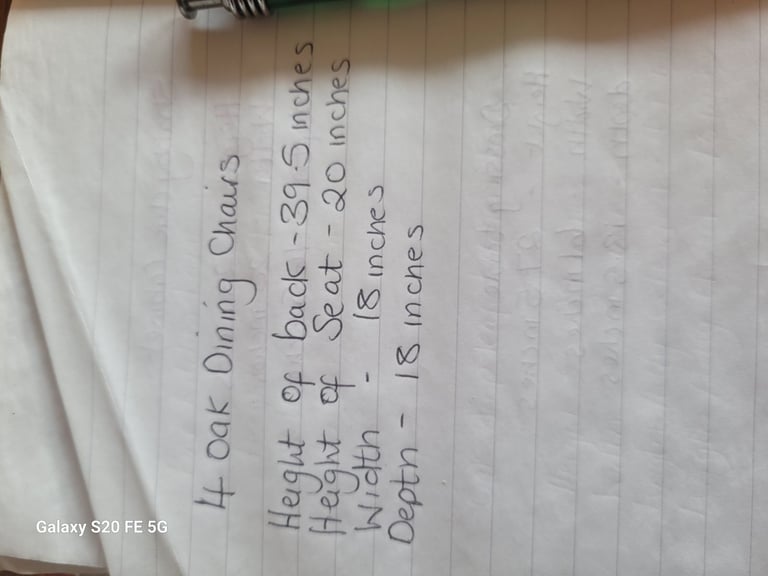 4 Oak Dining Chairs
Height of back - 39.5 inches
Height of Seat - 20 inches
Width - 18 inches
Depth - 18 inches
Galaxy S20 FE 5G